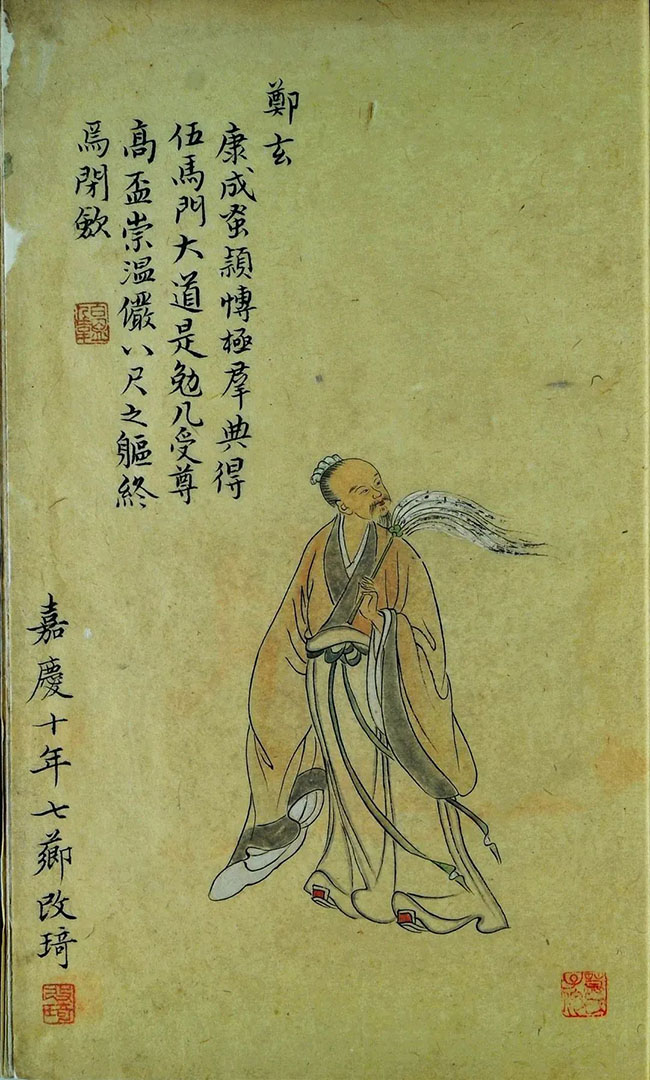 鄭玄
康成蚤穎愽極羣典得
伍馬門大道是勉几受尊
髙盃崇溫儼八尺之軀終
焉閉歛
嘉慶十年七薌改琦
改琦